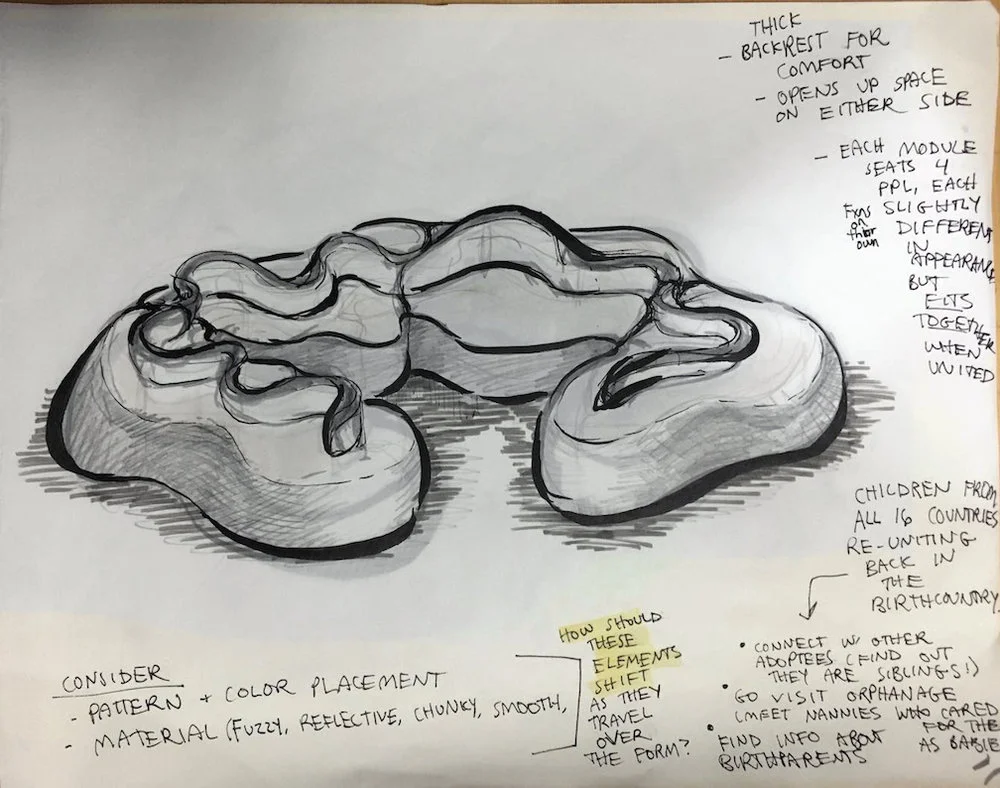 THICK
- BACKREST FOR
COMFORT
- OPENS UP SPACE
ON EITHER SIDE
- EACH MODULE
SEATS 4
PPL, EACH
SLIGHTLY
DIFFERENT
IN
APPEARANCE
BUT
FITS
TOGETHER
WHEN
UNITED
on
their
own
CHILDREN FROM
ALL 16 COUNTRIES
RE-UNITING
BACK IN
THE
BIRTHCOUNTRY
• CONNECT W/ OTHER
ADOPTEES (FIND OUT
THEY ARE SIBLINGS!)
• GO VISIT ORPHANAGE
(MEET NANNIES WHO CARED
FOR THE
AS BABIE
• FIND INFO ABOUT
BIRTHPARENTS
CONSIDER
- PATTERN + COLOR PLACEMENT
- MATERIAL (FUZZY, REFLECTIVE, CHUNKY, SMOOTH,
HOW SHOULD
THESE
ELEMENTS
SHIFT
AS THEY
TRAVEL
OVER
THE FORM?